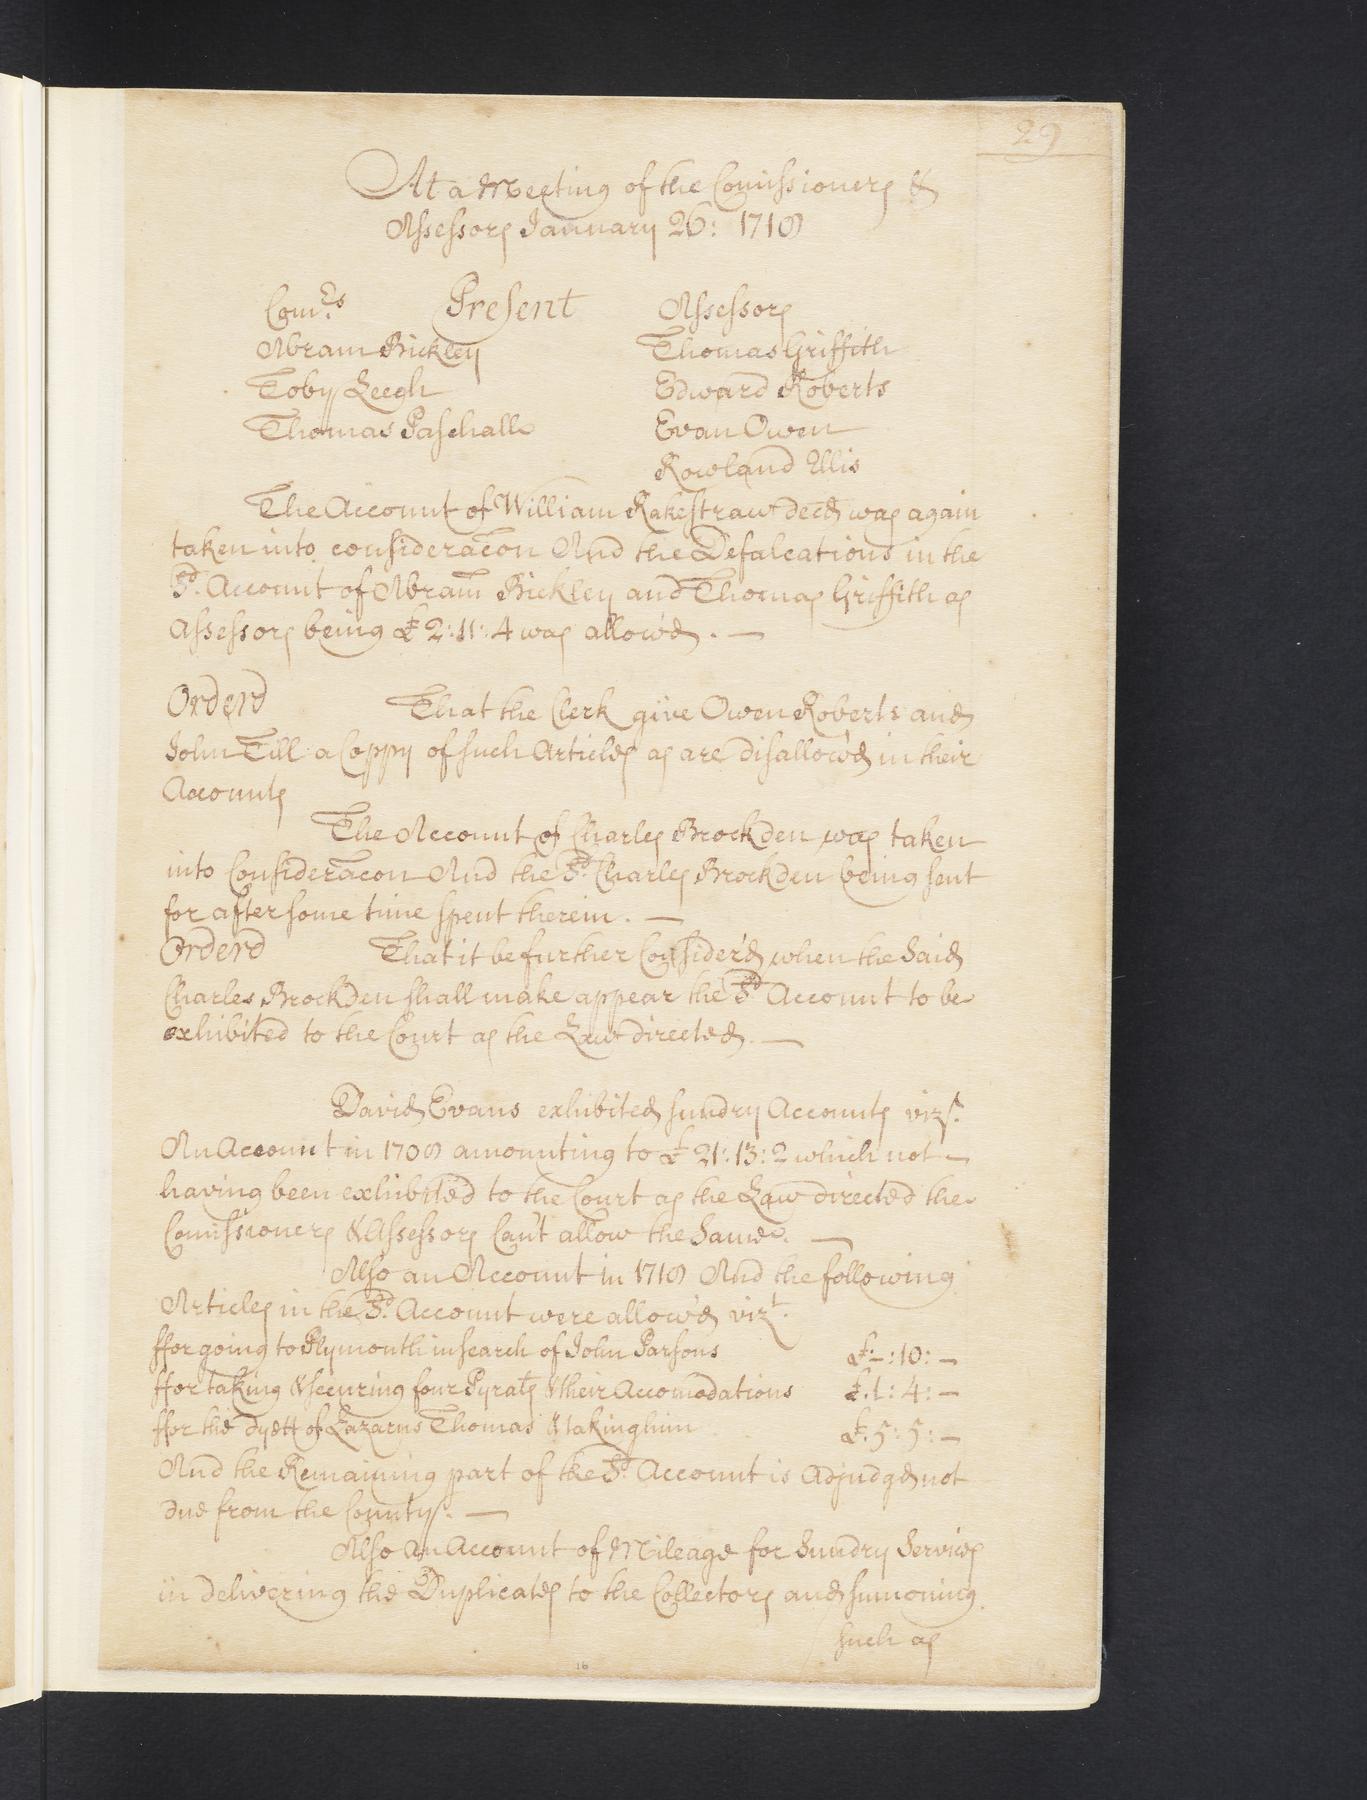 29
At a Meeting of the Comissioners &
Assessors January 26: 1718
Com.rs Present Assessors
Abram Bickley Thomas Griffith
Toby Leech Edward Roberts
Thomas Paschall Evan Owen
Rowland Ellis
The Account of William Rakestraw decd was again
taken into consideracon And the Defalcations in the
Sd. Account of Abram Bickley and Thomas Griffith as
Assessors being £ 2:11:4 was allow'd. —
Orderd That the Clerk give Owen Roberts and
John Till a Coppy of such Articles as are disallow'd in their
Accounts
The Account of Charles Brockden was taken
into Consideracon And the Sd. Charles Brockden being sent
for after some time spent therein. —
Orderd That it be further Consider'd when the Said
Charles Brockden shall make appear the Sd Account to be
exhibited to the Court as the Law directed. —
David Evans exhibited sundry Accounts vizt.
An Account in 1708 amounting to £ 21:13:2 which not —
having been exhibited to the Court as the Law directed the
Comissioners & Assessors Can't allow the Same. —
Also an Account in 1718 And the following
Articles in the Sd. Account were allow'd vizt.
ffor going to Plymouth in search of John Parsons £ –:10:–
ffor taking & securing four Pyrats & their Accomodations £.1:4:–
ffor the dyett of Lazarus Thomas & taking him £.5:5:–
And the Remaining part of the Sd. Account is Adjudg'd not
due from the County. —
Also An Account of Mileage for Sundry Services
in delivering the Duplicates to the Collectors and sumoning
such as
16